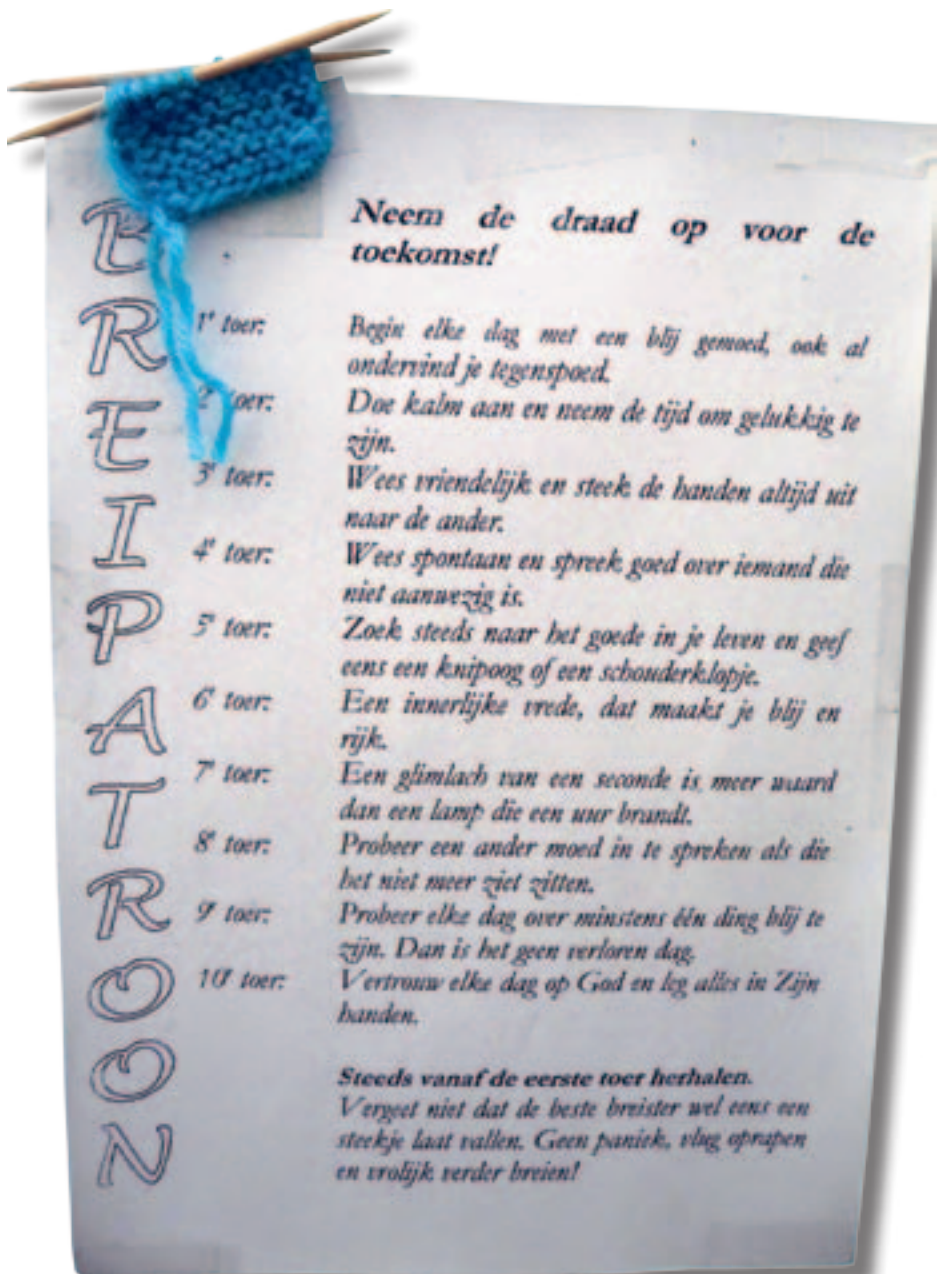 BREIPATROON
Neem de draad op voor de
toekomst!
1e toer: Begin elke dag met een blij gemoed, ook al
ondervind je tegenspoed.
2e toer: Doe kalm aan en neem de tijd om gelukkig te
zijn.
3e toer: Wees vriendelijk en steek de handen altijd uit
naar de ander.
4e toer: Wees spontaan en spreek goed over iemand die
niet aanwezig is.
5e toer: Zoek steeds naar het goede in je leven en geef
eens een knipoog of een schouderklopje.
6e toer: Een innerlijke vrede, dat maakt je blij en
rijk.
7e toer: Een glimlach van een seconde is meer waard
dan een lamp die een uur brandt.
8e toer: Probeer een ander moed in te spreken als die
het niet meer ziet zitten.
9e toer: Probeer elke dag over minstens één ding blij te
zijn. Dan is het geen verloren dag.
10e toer: Vertrouw elke dag op God en leg alles in Zijn
handen.
Steeds vanaf de eerste toer herhalen.
Vergeet niet dat de beste breister wel eens een
steekje laat vallen. Geen paniek, vlug oprapen
en vrolijk verder breien!